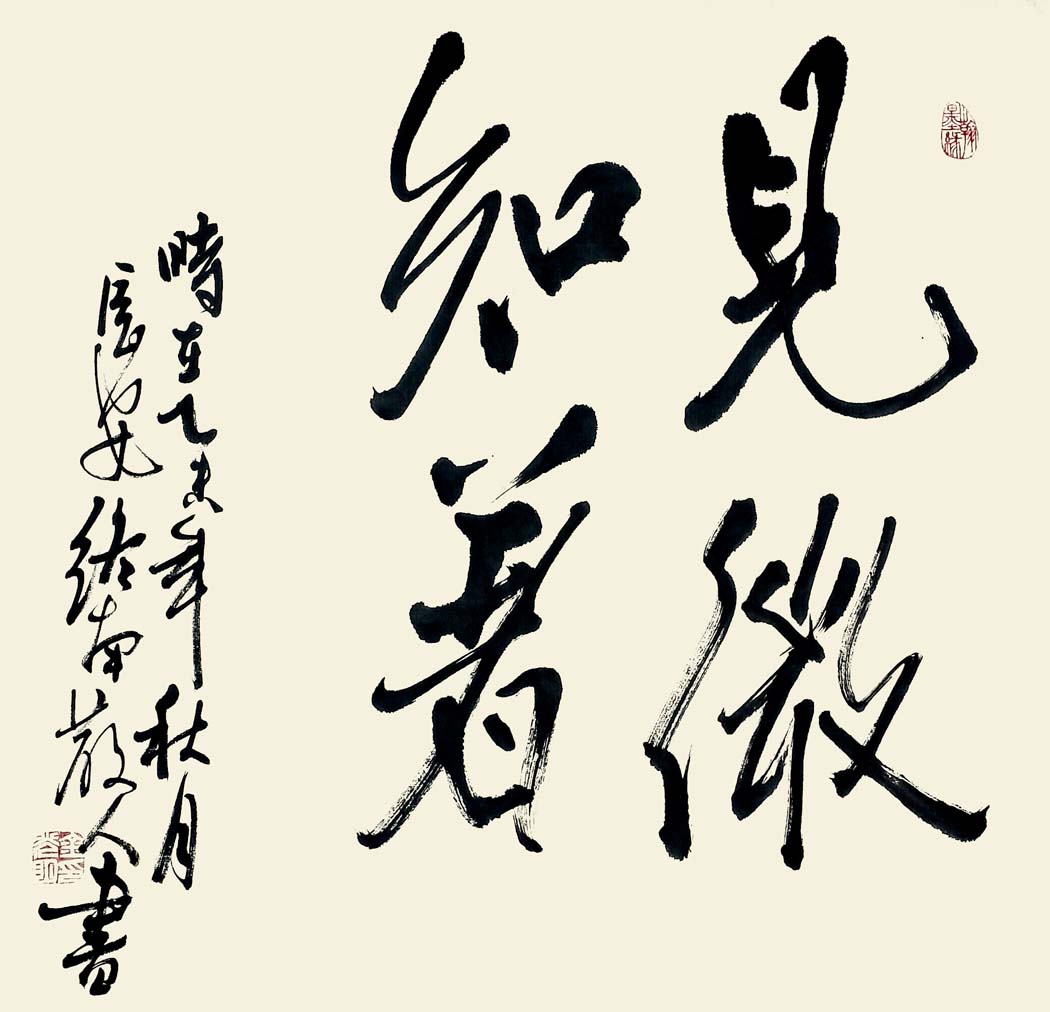 見微
知著
時在乙未年秋月
長安終南散人書